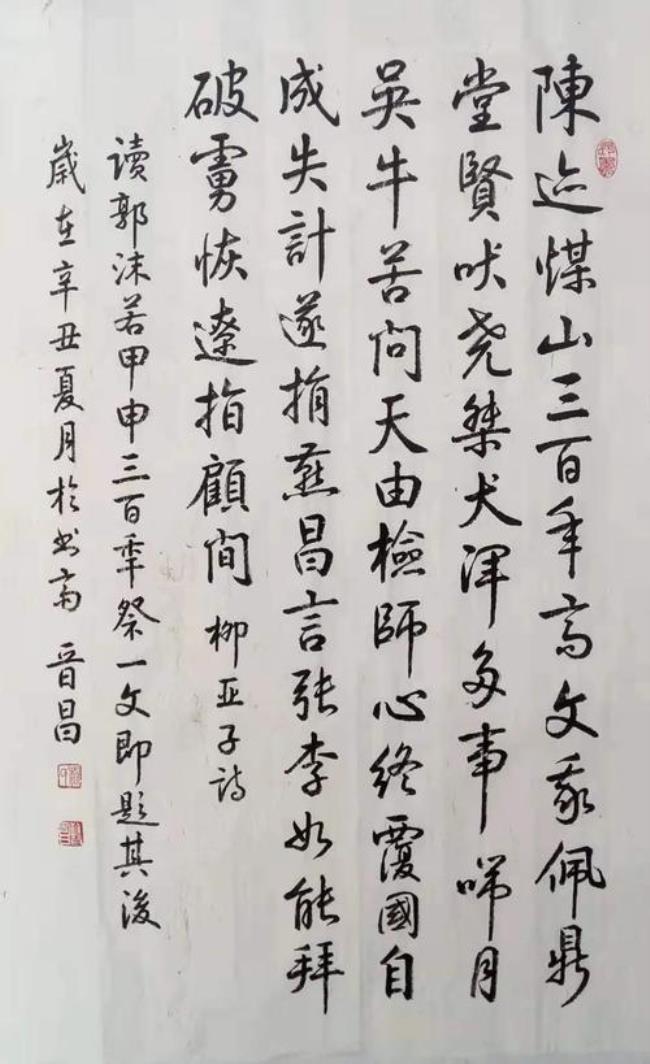 陳迹煤山三百年高文我佩鼎
堂賢吠堯桀犬渾多事喘月
吳牛苦問天由檢師心終覆國自
成失計遂捐燕昌言張李如能拜
破虜恢遼指顧間 柳亚子詩
讀郭沫若甲申三百年祭一文即題其後
歲在辛丑夏月於书斋 晋昌